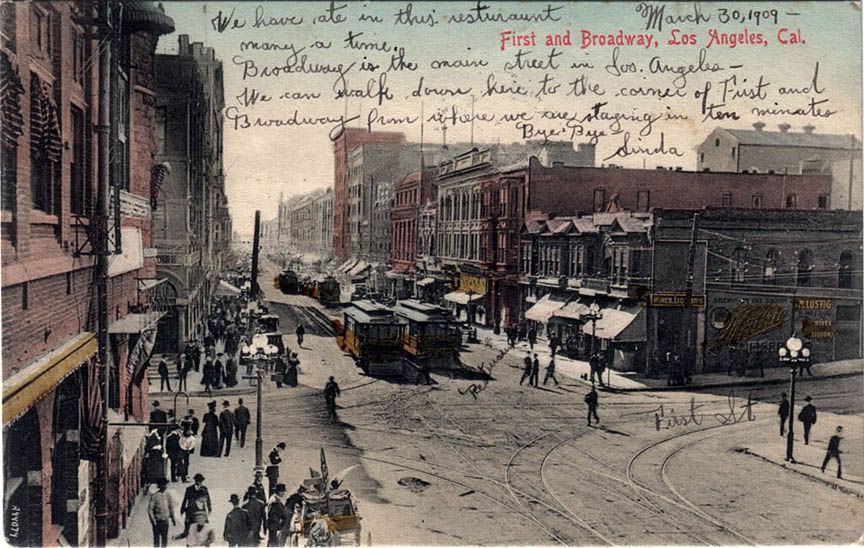 We have ate in this resturaunt
March 30, 1909 –
many a time.
First and Broadway, Los Angeles, Cal.
Broadway is the main street in Los. Angeles –
We can walk down here to the corner of First and
Broadway from where we are staging in ten minutes
Bye Bye
Linda
WINES, LIQUORS
M. LUSTIG
First St